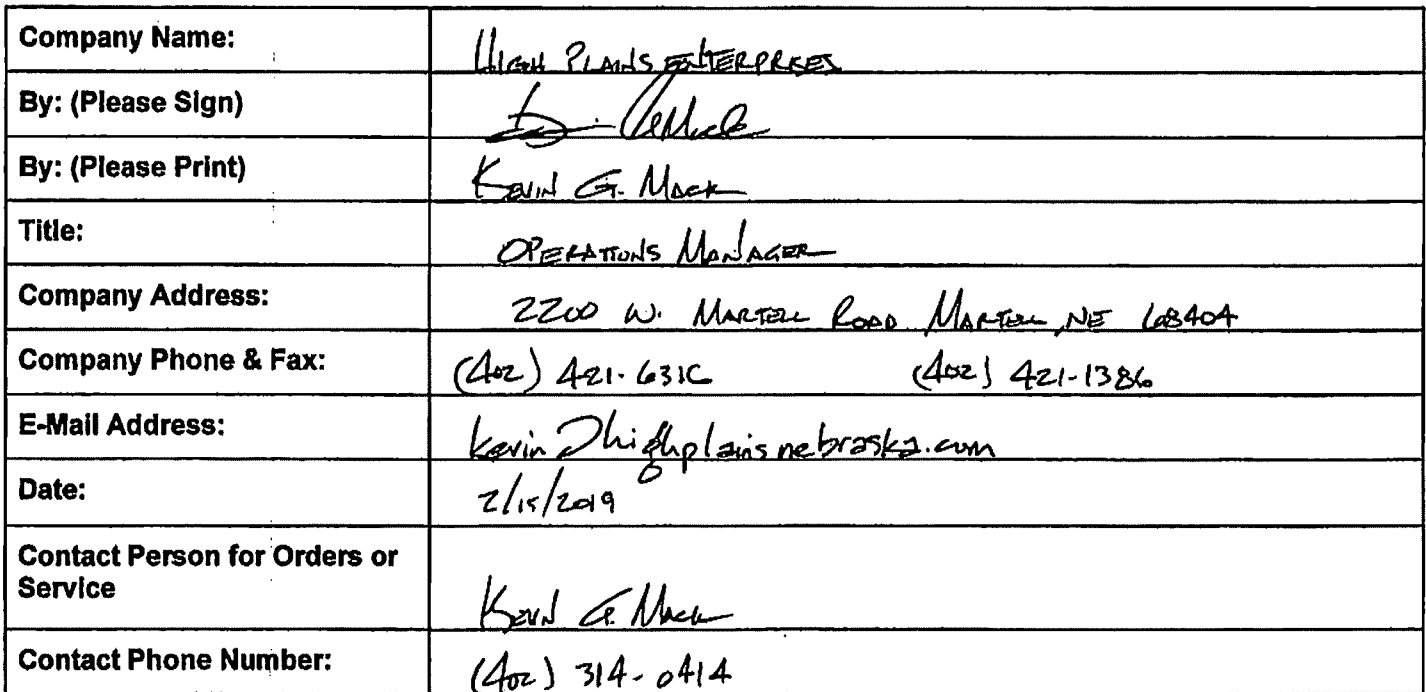 Company Name: HIGH PLAINS ENTERPRISES
By: (Please Sign)
By: (Please Print) KEVIN G. MACK
Title: OPERATIONS MANAGER
Company Address: 2200 W. MARTELL ROAD MARTELL, NE 68404
Company Phone & Fax: (402) 421-6316 (402) 421-1386
E-Mail Address: kevin@highplainsnebraska.com
Date: 2/15/2019
Contact Person for Orders or
Service KEVIN G. MACK
Contact Phone Number: (402) 314-0414